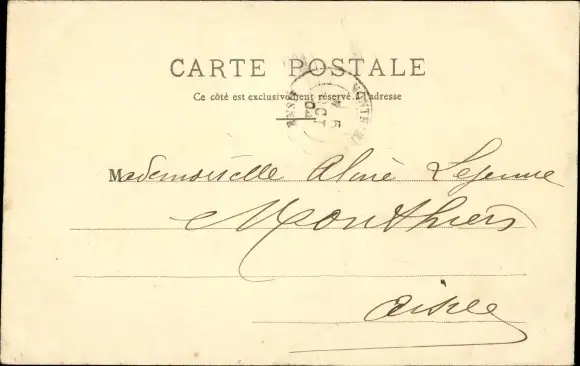 CARTE POSTALE
Ce côté est exclusivement réservé à l'adresse
Mademoiselle Aline Lejeune
Monthiers
Aisne